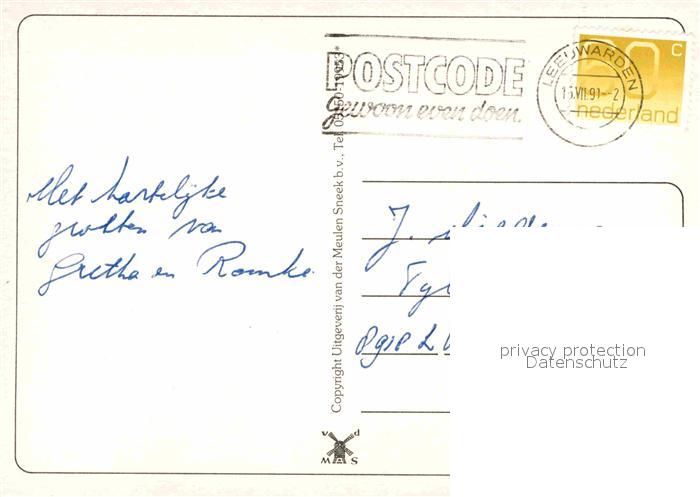 POSTCODE
gewoon even doen.
LEEUWARDEN
15.VII.91--2
60 C
nederland
Met hartelijke
groeten van
Gretha en Romke.
Copyright Uitgeverij van der Meulen Sneek b.v., Tel.
J.
v d
M S
privacy protection
Datenschutz